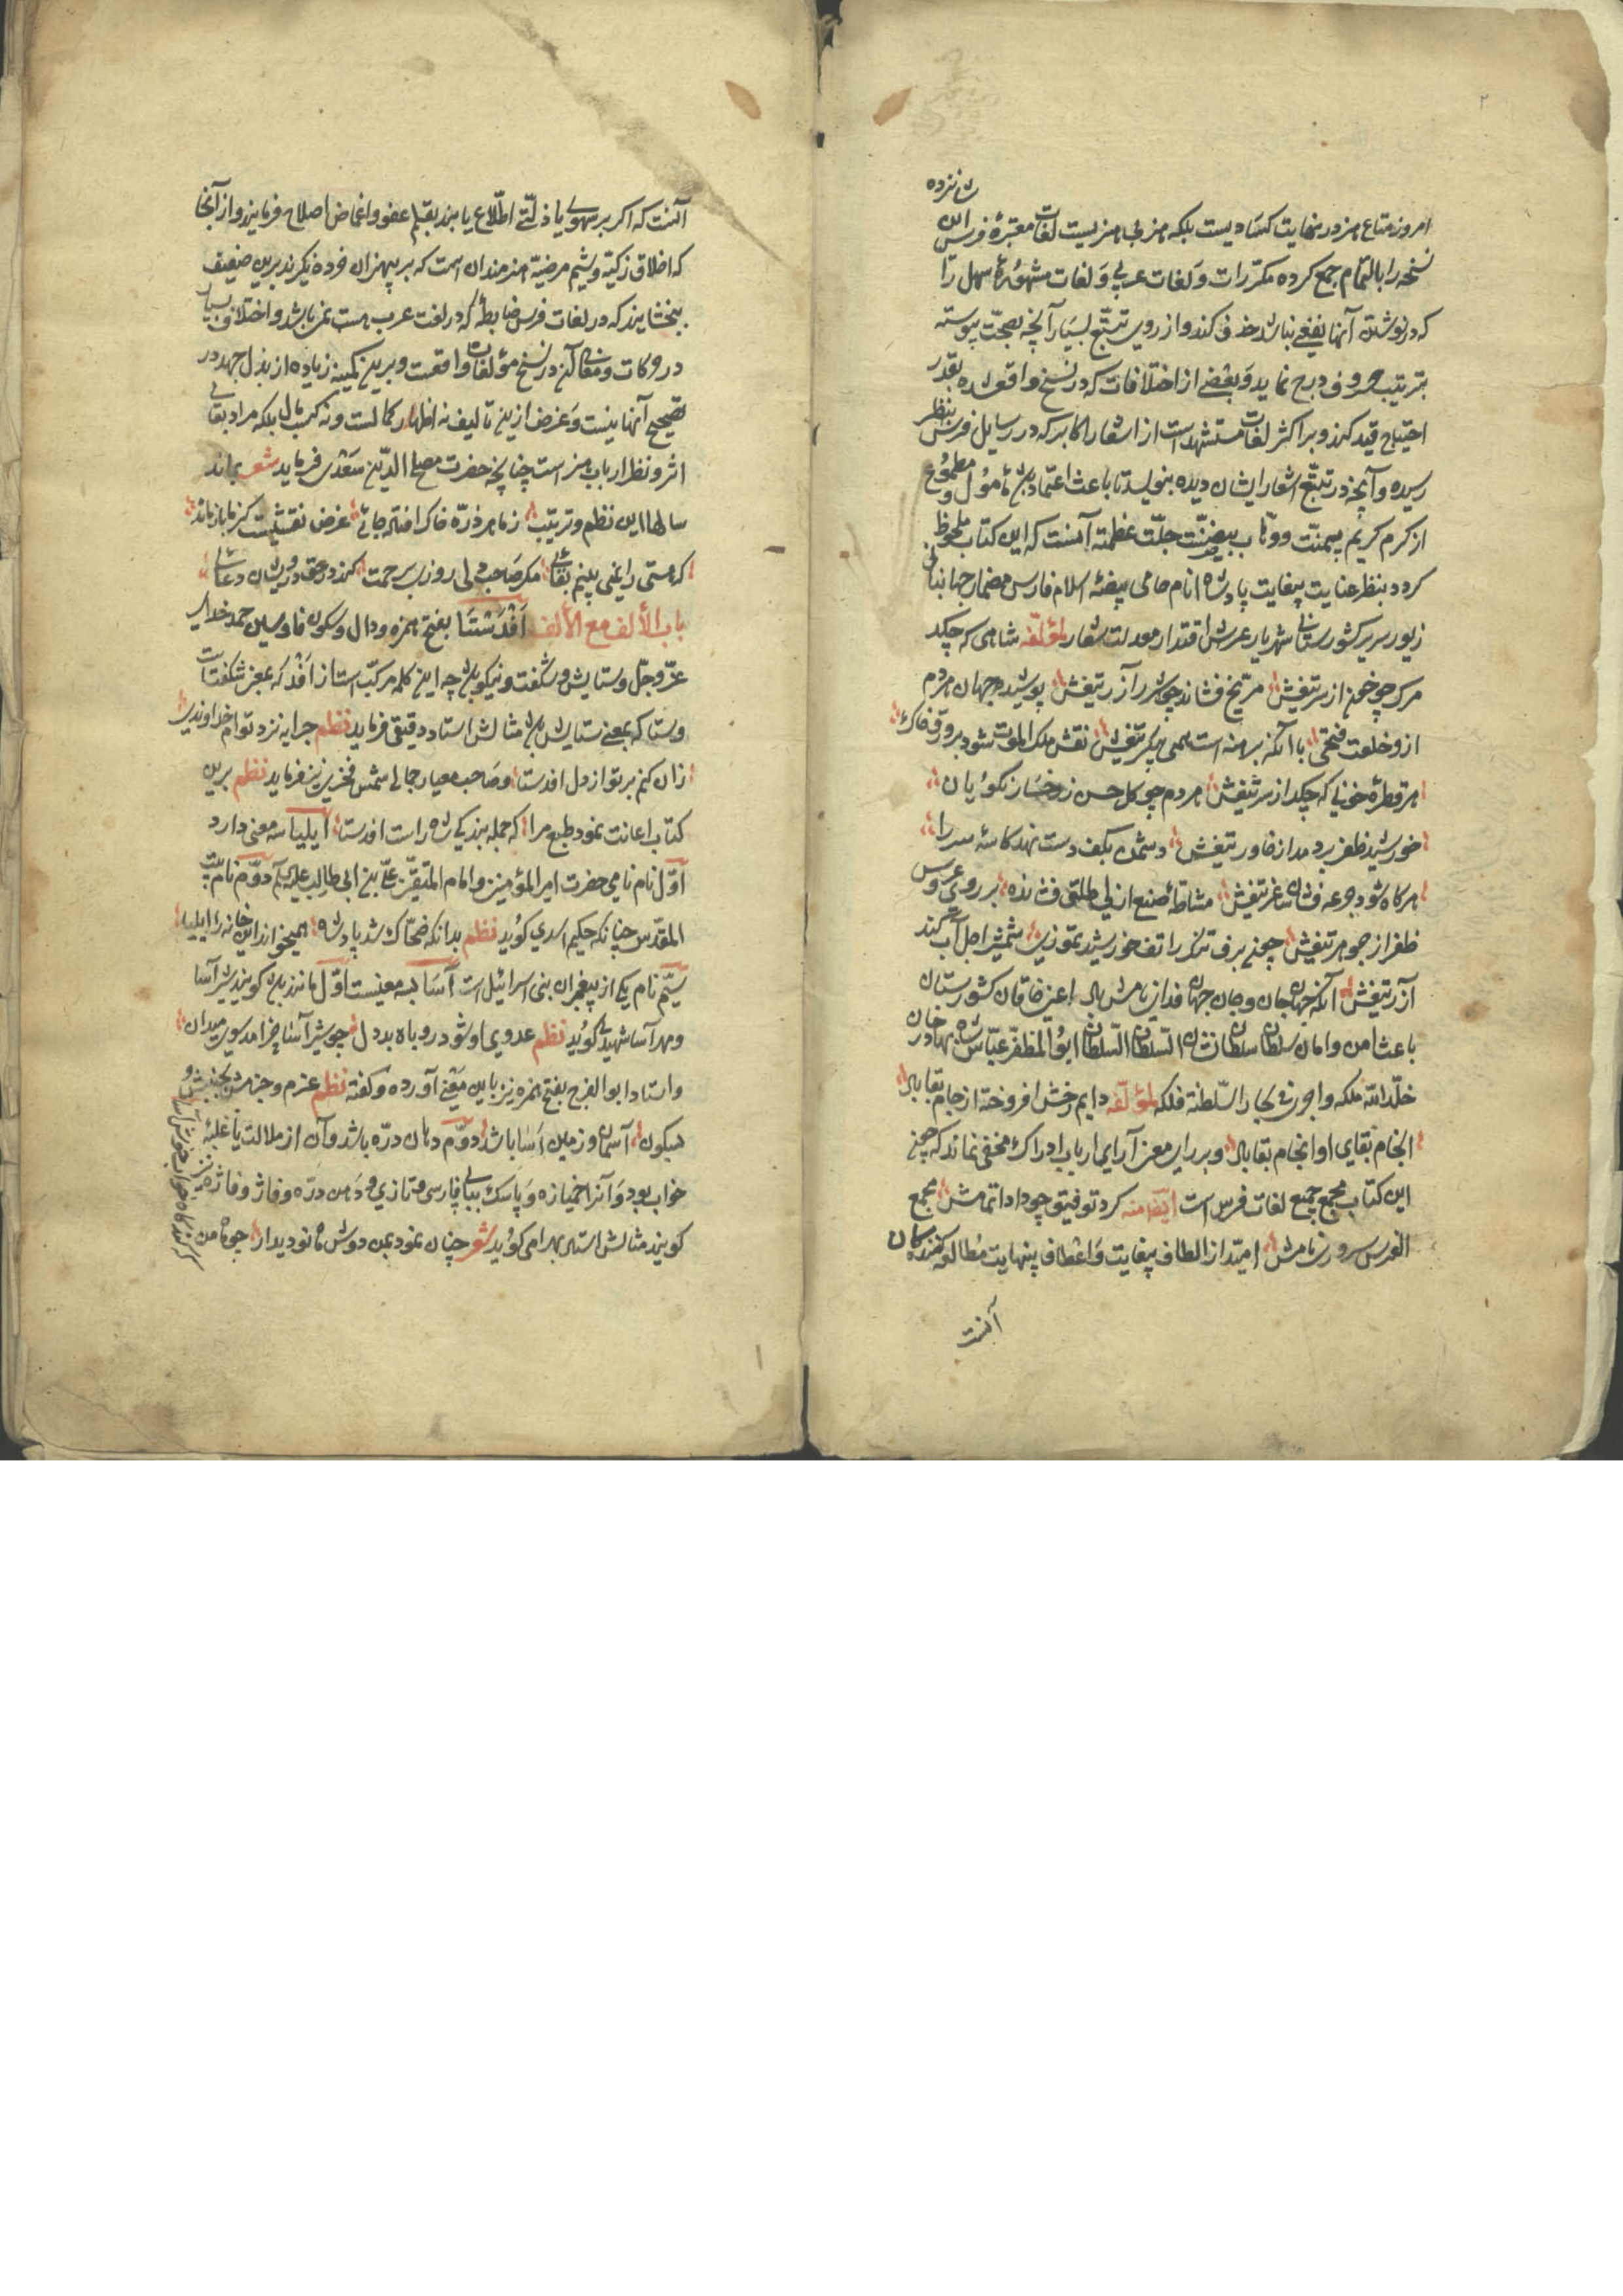 ۲
شانزده
امروز متاع هنر در نهایت کسادیست بلکه هنر بی هنریست لغات معتبرهٔ فرس این
نسخه را بالتمام جمع کرده مکررات و لغات عربی و لغات مشهورهٔ سهل را
که در نوشتن آنها نفعی نباشد حذف کند و از روی تتبع بسیار آنچه بصحت پیوسته
بترتیب حروف درج نماید و بعضی از اختلافات که در نسخ واقع شده بقدر
احتیاج قید کند و بر اکثر لغات مستشهدات از اشعار اکابر که در رسایل فرس بنظر
رسیده و آنچه در تتبع اشعار ایشان دیده بنویسد تا باعث اعتماد باشد مامول و مطموع
از کرم کریم بیمنت و وهاب بیضنت جلت عظمته آنست که این کتاب ملحوظ
کردد بنظر عنایت بیغایت پادشاه انام حامی بیضهٔ اسلام فارس مضمار جهانبانی
زیور سریر کشورستانی شهریار عرش اقتدار معدلت شعار لمؤلفه شاهی که چکد
مرک چو خون از سر تیغش مریخ فشاند چو شرر آذر تیغش پوشیده جهان مردم
ازو خلعت فتحی با آنکه برهنه است همی پیکر تیغش نقش ملک الموت شود بر ورق خاک
هر قطرهٔ خونی که چکد از سر تیغش مردم چو کل حسن ز رخسار نکویان
خورشید ظفر بر دمد از خاور تیغش دشمن بکف دست نهد کاسهٔ سر را
هر کاه شود جرعه فشان ساغر تیغش مشاطهٔ صنع ازلی طلق فشانده بر روی عروس
ظفر از جوهر تیغش چون برف تکرک را تف خورشید تموزی شمشیر اجل آب کند
آذر تیغش آنکه جهان جان و جان جهان فدای نامش باد اعنی خاقان کشورستان
باعث امن و امان سلطان سلطان نشان السلطان السلطان ابو المظفر عباس شاه بهادر خان
خلد الله ملکه و اجری فی بحار السلطنة فلکه لمؤلفه دایم رخش افروخته از جام بقا باد
انجام بقای او انجام بقا باد و بر رای معنی آرای ارباب ادراک مخفی نماند که چون
این کتاب مجمع جمیع لغات فرس است ایضا منه کرد توفیق چو داد اتمامش مجمع
الفرس سروری نامش امید از الطاف بیغایت و اعطاف بینهایت مطالعه کنندگان
آنست
آنست که اکر بر سهوی یا ذلتی اطلاع یابند بقلم عفو و اغماض اصلاح فرمایند و از آنجا
که اخلاق زکیه و شیم مرضیهٔ هنرمندان است که بر بیهنران خرده نکیرند برین ضعیف
ببخشایند که در لغات فرس ضابطهٔ که در لغت عرب هست نمیباشد و اختلاف بسیار
در حرکات و معانی آن در نسخ مؤلفات واقعست و برین کمینه زیاده از بذل جهد در
تصحیح آنها نیست و غرض ازین تالیف نه اظهار کمالست و نه کسب مال بلکه مراد بقای
اثر و نظر ارباب هنر است چنانچه حضرت مصلح الدین سعدی فرماید شعر بماند
سالها این نظم و ترتیب ز ما هر ذره خاک افتاده جائی غرض نقشیست کز ما باز ماند
که هستی را نمی بینم بقائی مکر صاحب دلی روزی برحمت کند در حق درویشان دعائی
باب الألف مع الألف اَفْدَسْتَا بفتح همزه و دال و سکون فا و سین حمد خدای
عز و جل و ستایش و شکفت و نیکو باشد چه این کلمه مرکب است از اَفْد که بمعنی شکفتست
و ستا که بمعنی ستایش باشد مثالش استاد دقیقی فرماید نظم جز از ایزد توام خداوندی
زان کنم بر تو از دل افدستا و صاحب معیار جمالی شمس فخری نیز فرماید نظم برین
کتاب اعانت نمود طبع مرا که جمله بندکی شاه راست افدستا ایلیا سه معنی دارد
اول نام نامی حضرت امیر المؤمنین و امام المتقین علی بن ابی طالب علیه السلام دوم نام بیت
المقدس چنانکه حکیم اسدی کوید نظم بدانکه ضحاک شد پادشاه همی خواند این خانه را ایلیا
سیم نام یکی از پیغمبران بنی اسرائیل است آسا بسه معنیست اول مانند باشد کویند شیر آسا
و مهر آسا شهیدی کوید نظم عدوی او شود روباه بد دل چو شیر آسا خرامد سوی میدان
و استاد ابو الفرج بفتح همزه نیز باین معنی آورده و کفته نظم عزم و حزمش بجنبش و
سکون آسمان و زمین اسا باشد دوم دهان دره باشد و آن از ملالت یا غلبهٔ
خواب بود و آنرا خمیازه و پاسک ببای پارسی و تازی و دهن دره و فاژ و فاژه نیز
کویند مثالش استاد بهرامی کوید شعر چنان نمود بمن دوش ماه نو دیدار چو ماه من